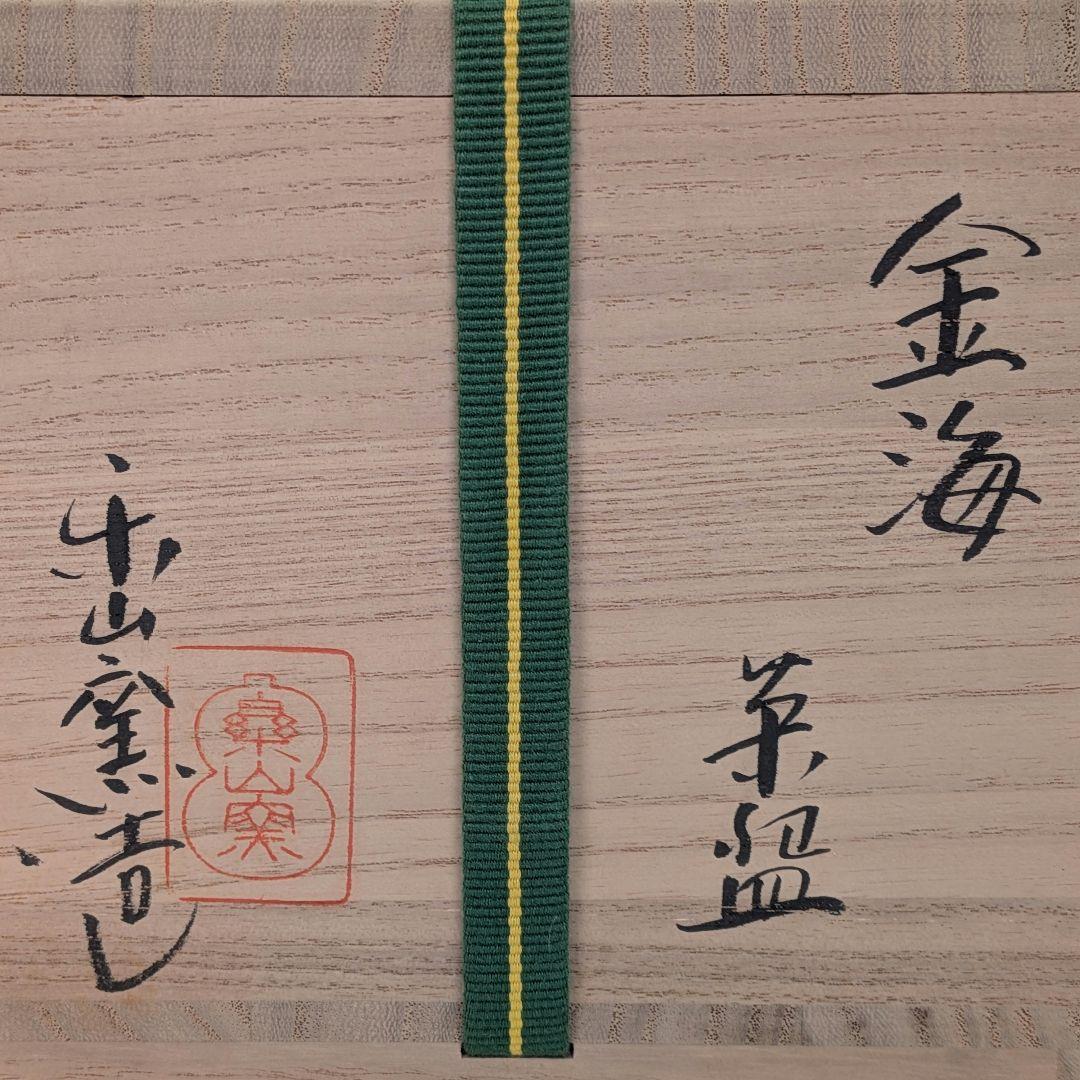 金海
茶盌
楽山窯造
楽山窯